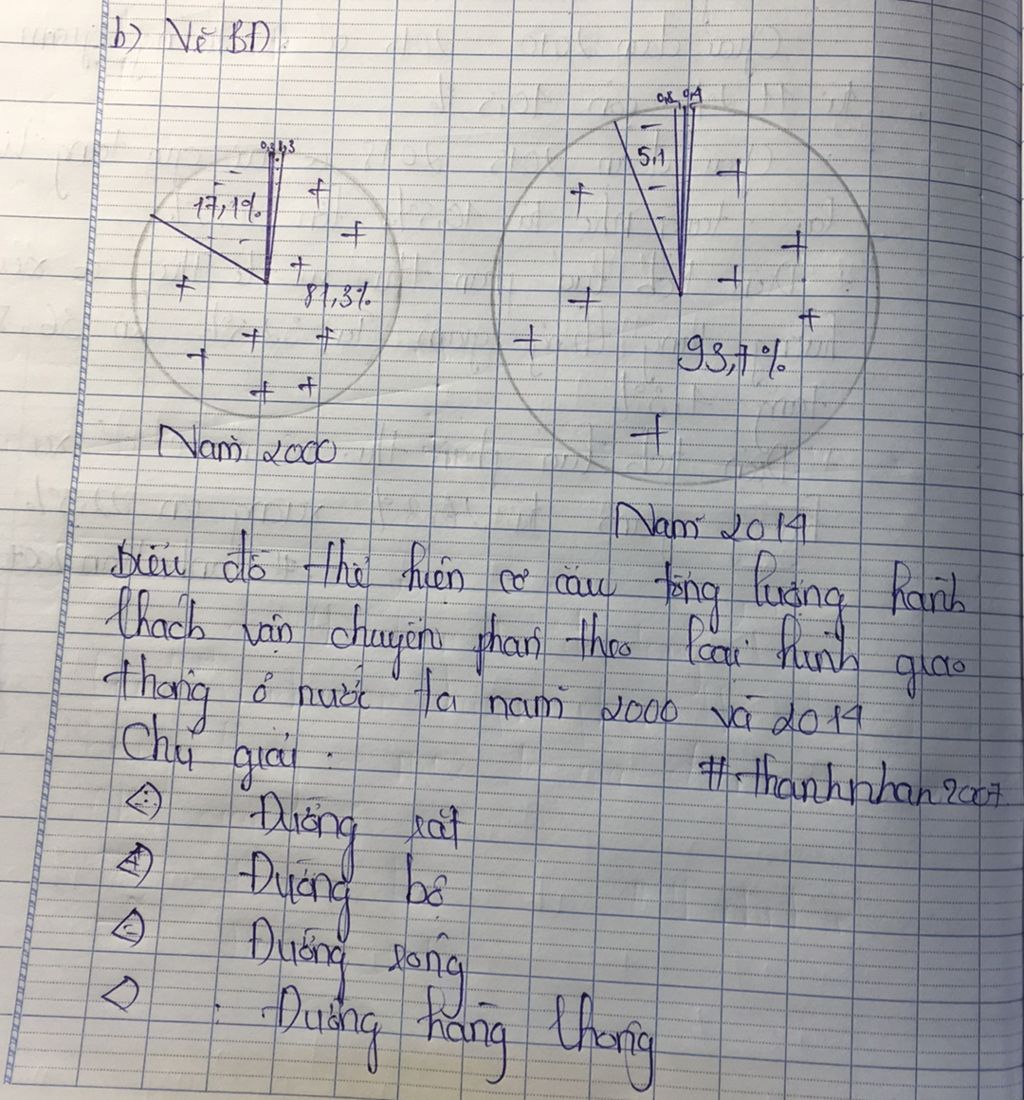 b) Vẽ BĐ
0,3 1,3
17,1%
81,3%
Năm 2000
0,8 0,4
5,1
93,7%
Năm 2014
Biểu đồ thể hiện cơ cấu tổng lượng hành
khách vận chuyển phân theo loại hình giao
thông ở nước ta năm 2000 và 2014
Chú giải:
#thanhnhan2007
Đường sắt
Đường bộ
Đường sông
Đường hàng không